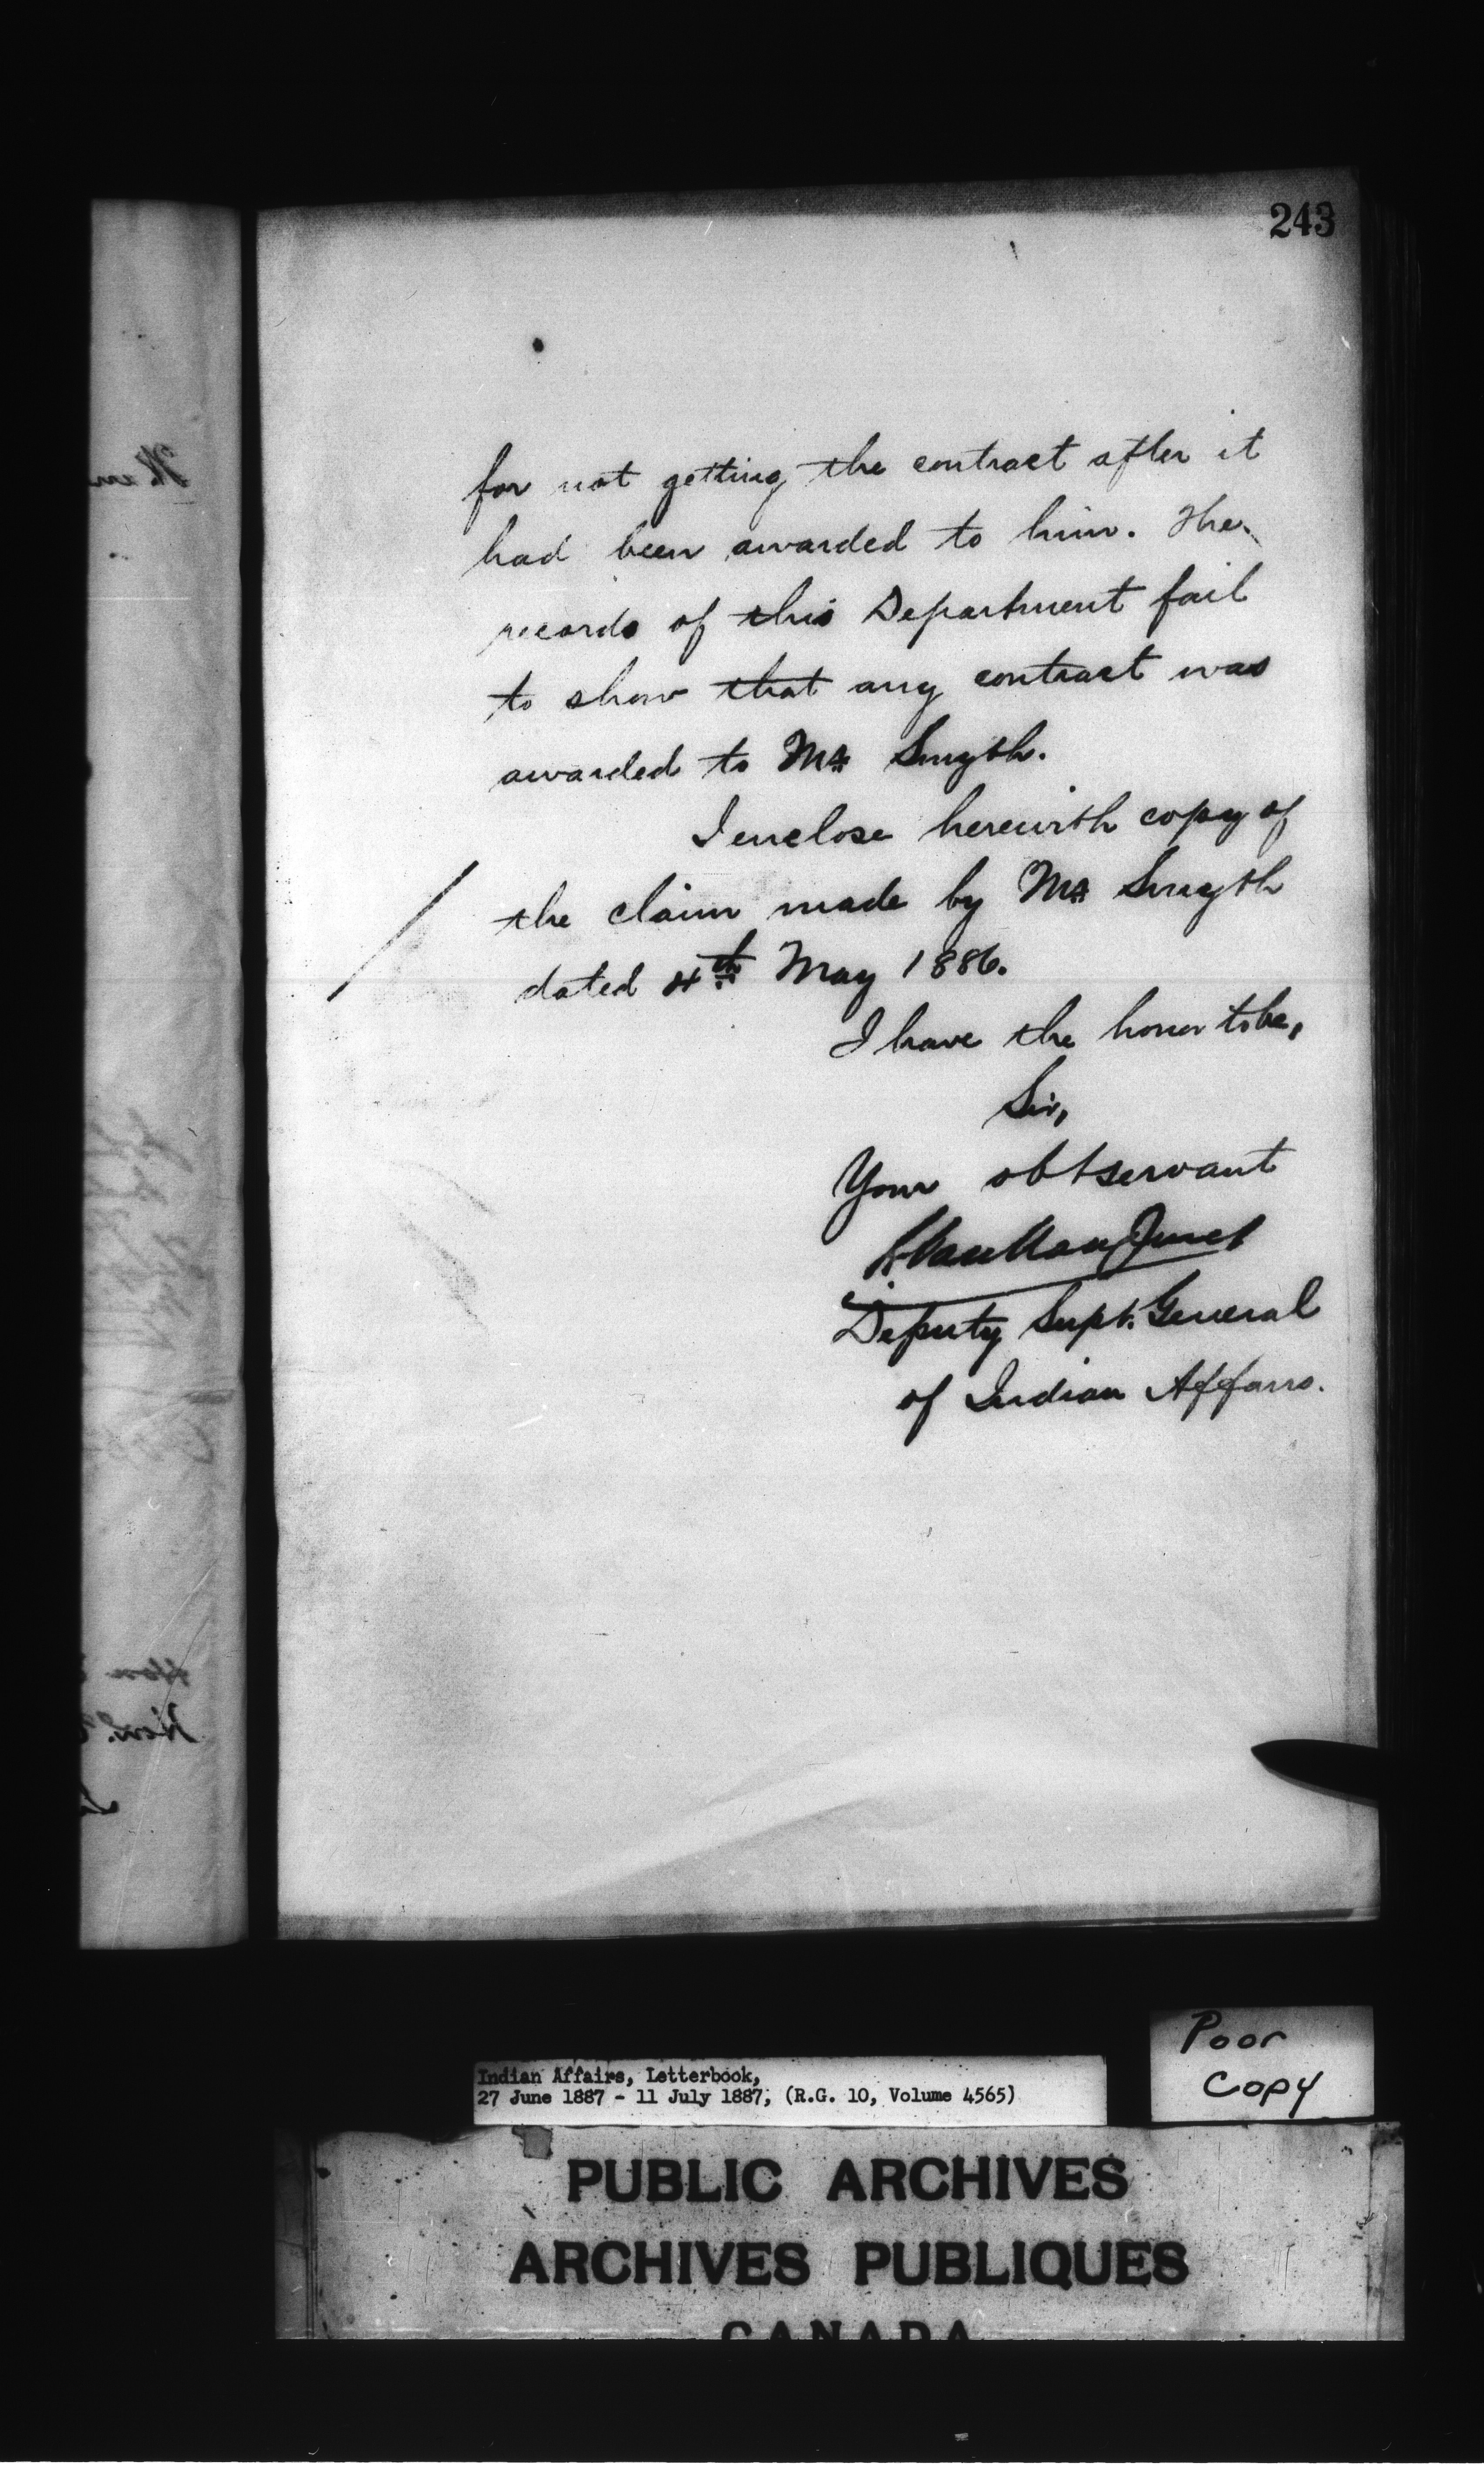 243
for not getting the contract after it
had been awarded to him. The
records of this Department fail
to show that any contract was
awarded to Mr Smyth.
I enclose herewith copy of
the claim made by Mr Smyth
dated 4th May 1886.
I have the honor to be,
Sir,
Your obt servant
L. VanKoughnet
Deputy Supt. General
of Indian Affairs.
Poor
Copy
Indian Affairs, Letterbook,
27 June 1887 - 11 July 1887, (R.G. 10, Volume 4565)
PUBLIC ARCHIVES
ARCHIVES PUBLIQUES
CANADA